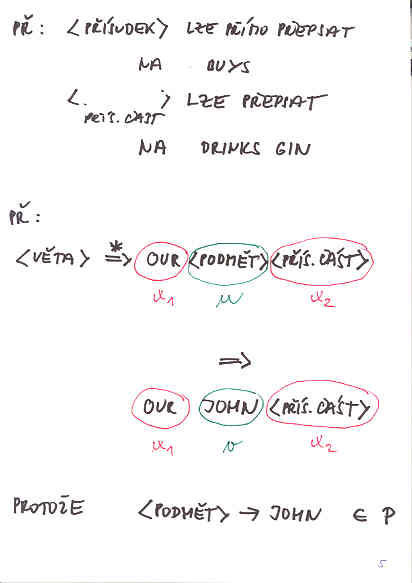 PŘ: <PŘÍSUDEK> LZE PŘÍMO PŘEPSAT
NA BUYS
<PŘÍS. ČÁST> LZE PŘEPSAT
NA DRINKS GIN
PŘ:
<VĚTA> *⇒ OUR <PODMĚT> <PŘÍS. ČÁST>
x₁ u x₂
⇒
OUR JOHN <PŘÍS. ČÁST>
x₁ v x₂
PROTOŽE <PODMĚT> → JOHN ∈ P
5